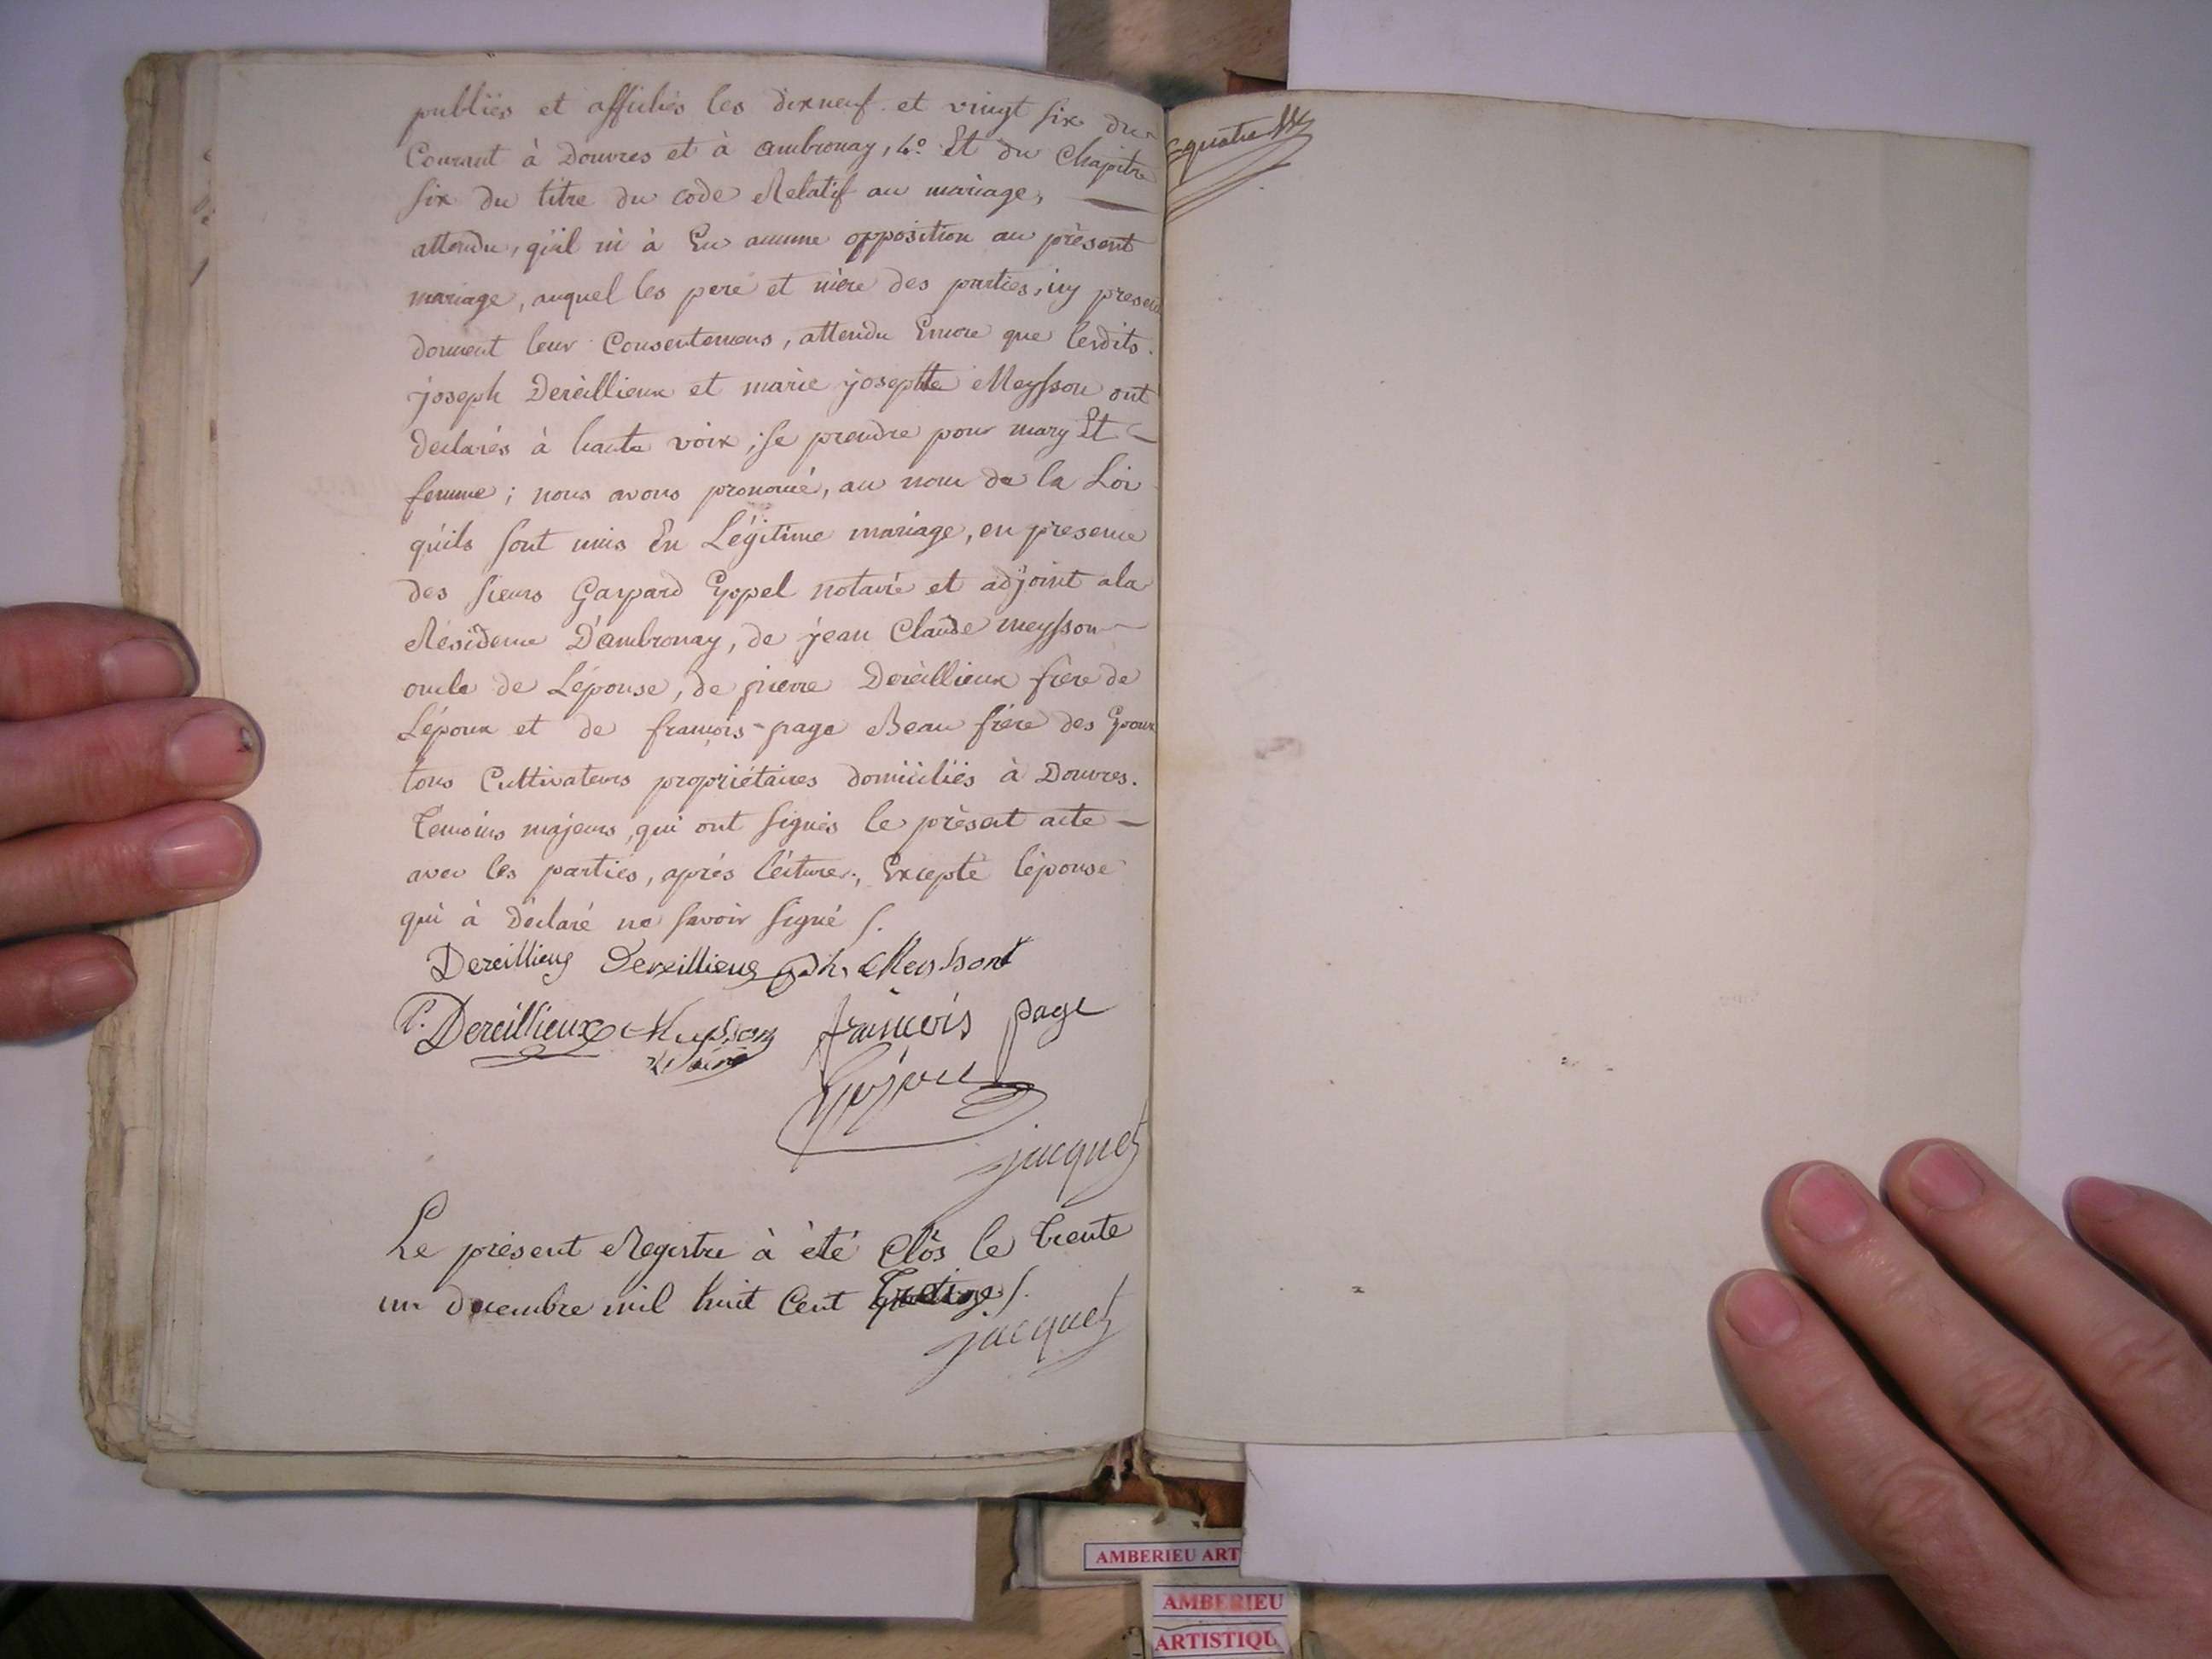 publiés et affichés les dixneuf et vingt six du
Courant à Douvres et à ambronay, 4.º Et du Chapitre
six du titre du code Relatif au mariage,
attendu, qu'il ni à Eu aucune opposition au présent
mariage, auquel les pere et mère des parties, icy present
donnent leur Consentemens, attendu Encore que lesdits.
joseph Dereillieux et marie josephte Meysson ont
declarés à haute voix ; se prendre pour mary Et
femme ; nous avons prononcé, au nom de la Loi
qu'ils sont unis En Légitime mariage, en presence
des sieurs Gaspard notaire et adjoint a la
Résidence D'ambronay, de jean Claude meysson
oncle de L'épouse, de pierre Dereillieux frère de
L'époux et de françois page Beau frère des Epoux
tous Cultivateurs propriétaires domiciliés à Douvres.
Temoins majeurs, qui ont signés le présent acte
avec les parties, après lécture, Excepté l'épouse
qui à déclaré ne savoir signé ./.
Dereillieux Dereillieux Meysson
P. Dereillieux Meysson françois page
jacquet
Le présent Registre à été Clôs le trente
un decembre mil huit Cent ./.
jacquet
quatre
AMBERIEU ART
AMBERIEU
ARTISTIQU